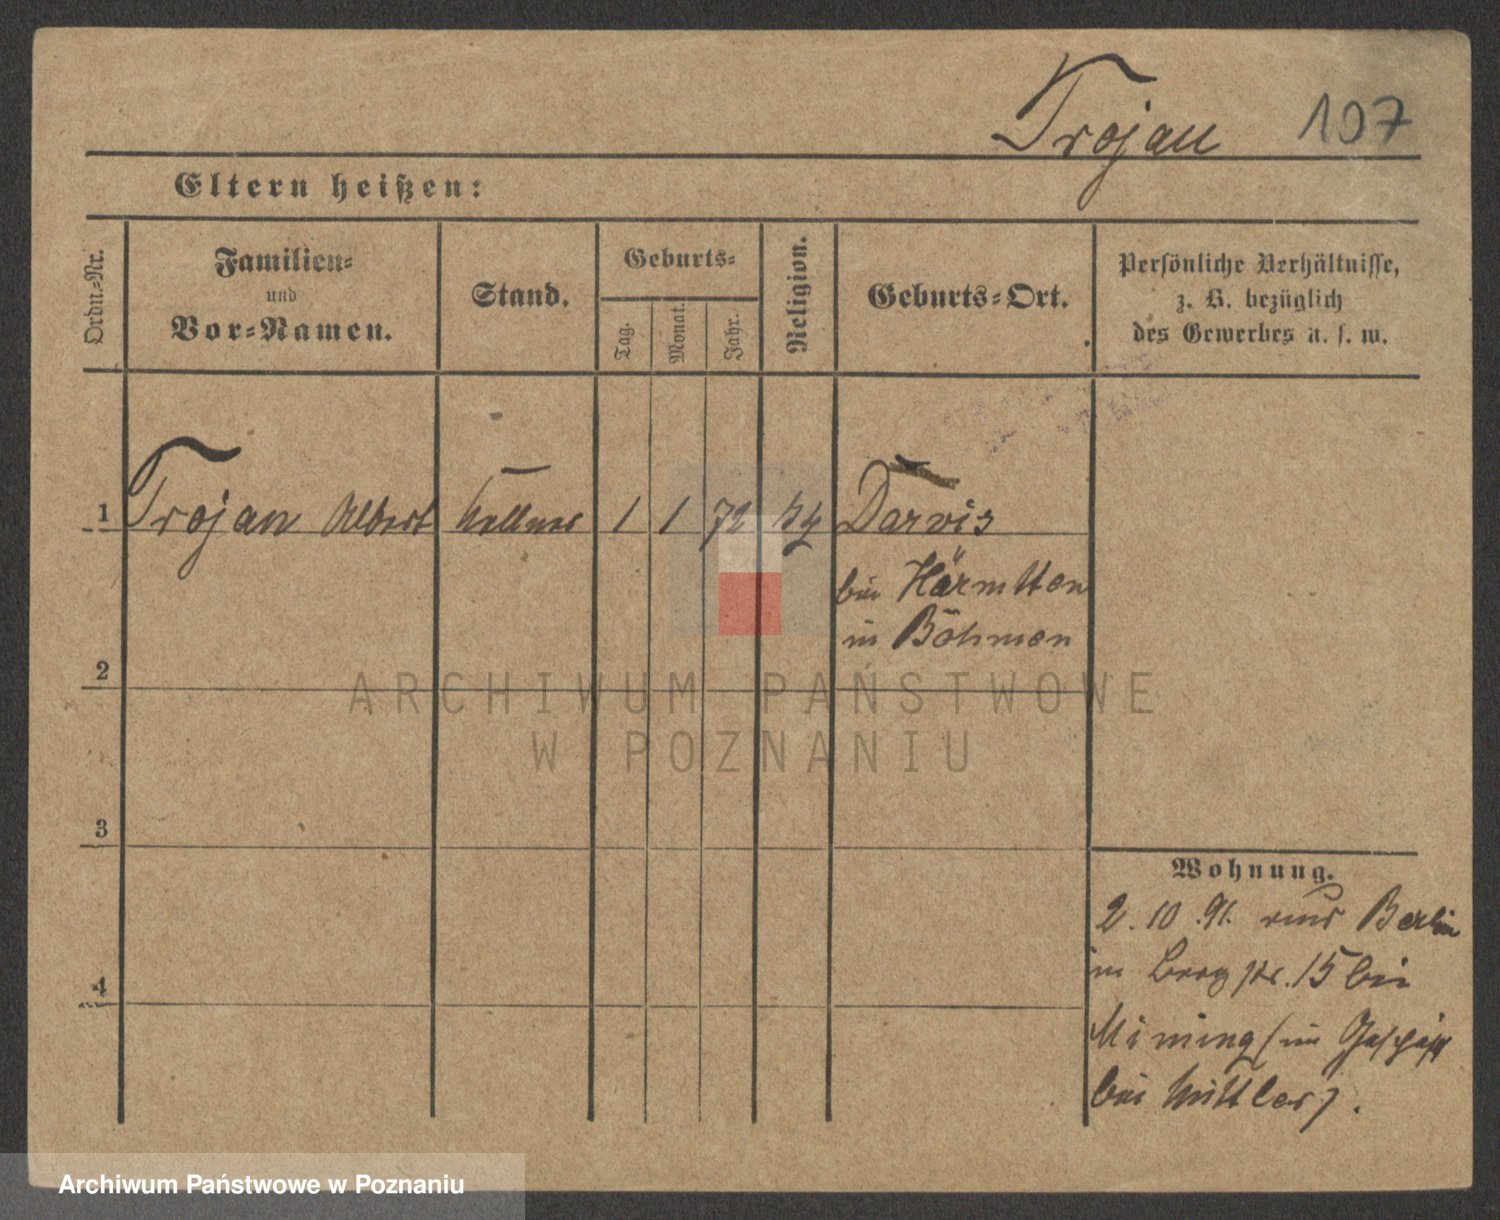 Trojan 107
Eltern heißen:
Ordn.-Nr.
Familien-
und
Vor-Namen.
Stand.
Geburts-
Tag.
Monat.
Jahr.
Religion.
Geburts-Ort.
Persönliche Verhältnisse,
z. B. bezüglich
des Gewerbes u. s. w.
1 Trojan Albert Kellner 1 1 72 Darvis
bei Härmtten
in Böhmen
2
3
4
Wohnung.
2. 10. 91. aus Berlin
in Berg str. 15 bei
Mining (im Geschäft
bei Mittler).
ARCHIWUM PAŃSTWOWE
W POZNANIU
Archiwum Państwowe w Poznaniu